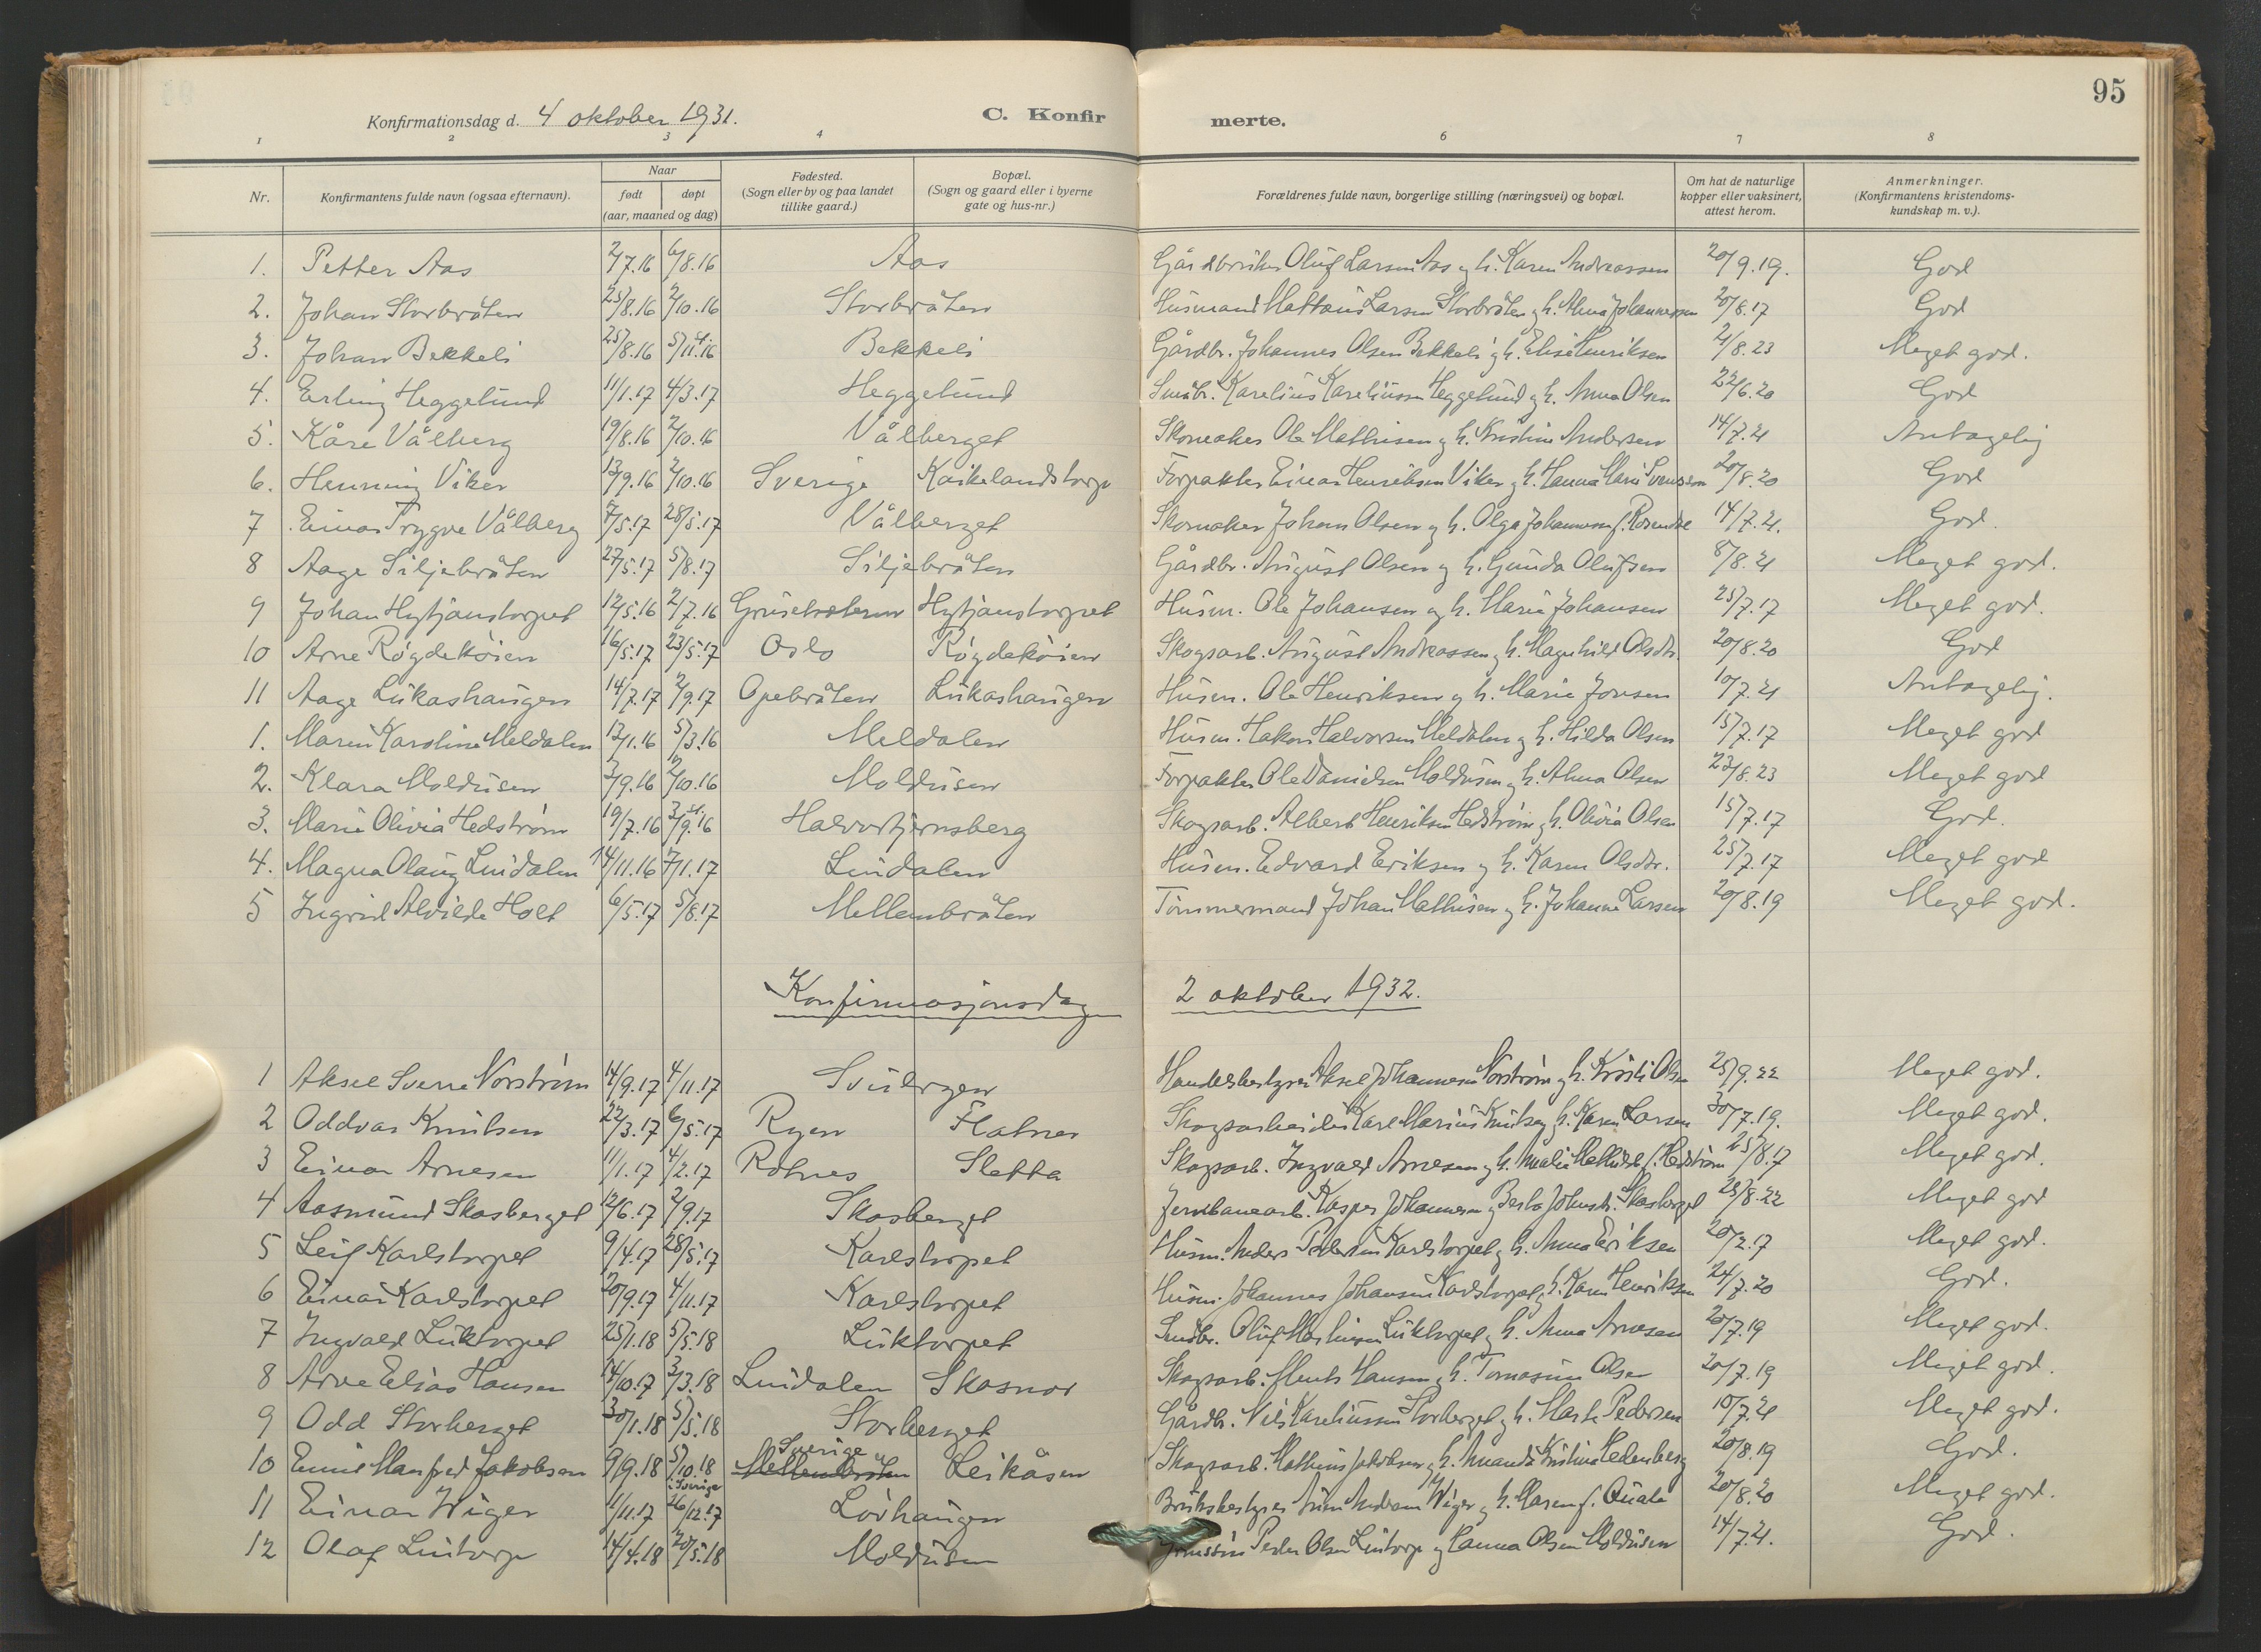 95
Konfirmationsdag d. 4 oktober 1931.
C. Konfirmerte.
1 2 3 4 6 7 8
Nr. Konfirmantens fulde navn (ogsaa efternavn). Naar født døpt (aar, maaned og dag) Fødested. (Sogn eller by og paa landet tillike gaard.) Bopæl. (Sogn og gaard eller i byerne gate og hus-nr.) Forældrenes fulde navn, borgerlige stilling (næringsvei) og bopæl. Om hat de naturlige kopper eller vaksinert, attest herom. Anmerkninger. (Konfirmantens kristendomskundskap m. v.).
1. Petter Aas 2/7.16 6/8.16 Aas Gårdbruker Oluf Larsen Aas og h. Karen Andreassen 20/9.19. God
2. Johan Storbråten 25/8.16 2/10.16 Storbråten Husmand Mattæus Larsen Storbråten og h. Alma Johannessen 20/8.17 God
3. Johan Bekkeli 25/8.16 5/11.16 Bekkeli Gårdbr. Johannes Olsen Bekkeli og h. Elise Henriksen 21/8.23 Meget god.
4. Erling Heggelund 11/1.17 4/3.17 Heggelund Småbr. Karelius Kareliussen Heggelund og h. Anna Olsen 22/6.20 God
5. Kåre Vålberg 19/8.16 2/10.16 Vålberget Skomaker Ole Mathisen og h. Kristine Andersen 14/7.21 Antagelig
6. Henning Viker 13/9.16 2/10.16 Sverige Kaikelandstorp Forpakter Einar Henriksen Viker og h. Hanna Marie Svensen 20/8.20 God
7 Einar Trygve Vålberg 7/5.17 28/5.17 Vålberget Skomaker Johan Olsen og h. Olga Johannesen f. Rosendal 14/7.21. God.
8 Aage Siljebråten 27/5.17 5/8.17 Siljebråten Gårdbr. August Olsen og h. Gunda Olufsen 8/8.21 Meget god.
9 Johan Hytjanstorpet 12/5.16 2/7.16 Gruesætra Hytjanstorpet Husm. Ole Johansen og h. Marie Johansen 25/7.17 Meget god.
10 Arne Røgdekoien 16/5.17 23/5.17 Oslo Røgdekoien Skogsarb. August Andreassen og h. Magnhild Olsdtr. 20/8.20 God
11 Aage Lukashaugen 14/7.17 2/9.17 Opebråten Lukashaugen Husm. Ole Henriksen og h. Marie Jonsen 10/7.21 Antagelig.
1. Maren Karoline Meldalen 12/1.16 5/3.16 Meldalen Husm. Hakon Halvorsen Meldalen og h. Hilda Olsen 15/7.17 Meget god
2. Klara Moldusen 3/9.16 2/10.16 Moldusen Forpakter Ole Danielsen Moldusen og h. Alma Olsen 23/8.23 Meget god
3. Marie Olivia Hedstrøm 19/7.16 3/9.16 Halvortjernsberg Skogsarb. Albert Henriksen Hedstrøm og h. Olivia Olsen 15/7.17 God.
4. Magna Olaug Lindalen 14/11.16 7/1.17 Lindalen Husm. Edvard Eriksen og h. Karen Olsdtr. 25/7.17 Meget god
5 Ingrid Alvilde Holt 6/5.17 5/8.17 Mellembråten Tømmermand Johan Mathisen og h. Johanne Larsen 20/8.19 Meget god.
Konfirmasjonsdag 2 oktober 1932.
1 Aksel Sverre Norstrøm 14/9.17 4/11.17 Svulrya Handelsbestyrer Aksel Johannesen Norstrøm og h. Kristi Olsen 25/9.22 Meget god.
2 Oddvar Knutsen 22/3.17 6/5.17 Ryen Flatner Skogsarbeider Karl Marius Knutsen og h. Karen Larsen 30/7.19. Meget god.
3 Einar Arnesen 11/1.17 4/2.17 Rotnes Sletta Skogsarb. Ingvald Arnesen og h. Amalie Mathilde f. Hedstrøm 25/8.17 Meget god.
4 Aasmund Skasberget 12/6.17 2/9.17 Skasberget Jernbanearb. Kasper Johannesen og Berta Johnsdtr. Skasberget 25/8.22 Meget god
5 Leif Karlstorpet 9/4.17 28/5.17 Karlstorpet Husm. Anders Pedersen Karlstorpet og h. Anna Eriksen 20/7.17 Meget god.
6 Einar Karlstorpet 20/9.17 4/11.17 Karlstorpet Husm. Johannes Johansen Karlstorpet og h. Karen Henriksen 24/7.20 God.
7 Ingvald Luktorpet 25/1.18 5/5.18 Luktorpet Småbr. Oluf Martinsen Luktorpet og h. Anna Arnesen 20/7.19 Meget god.
8 Arve Elias Hansen 14/10.17 3/3.18 Lindalen Skasnor Skogsarb. Ments Hansen og h. Tomasine Olsen 20/7.19 Meget god.
9 Odd Storberget 30/1.18 5/5.18 Storberget Gårdbr. Nils Kareliussen Storberget og h. Marte Pedersen 10/7.21 Meget god.
10 Emil Manfred Jakobsen 9/9.18 5/10.18 i Sverige Sverige Mellembråten Leikåsen Skogsarb. Matheus Jakobsen og h. Amanda Kristina Hedenberg 20/8.19 God.
11 Einar Wiger 1/11.17 26/12.17 Lövhaugen Bruksbestyrer Arne Andersen Wiger og h. Maren f. Quale 20/8.20 Meget god.
12 Olaf Lintorp 14/4.18 20/5.18 Moldusen Peder Olsen Lintorp og Hanna Olsen Moldusen 14/7.21. God.